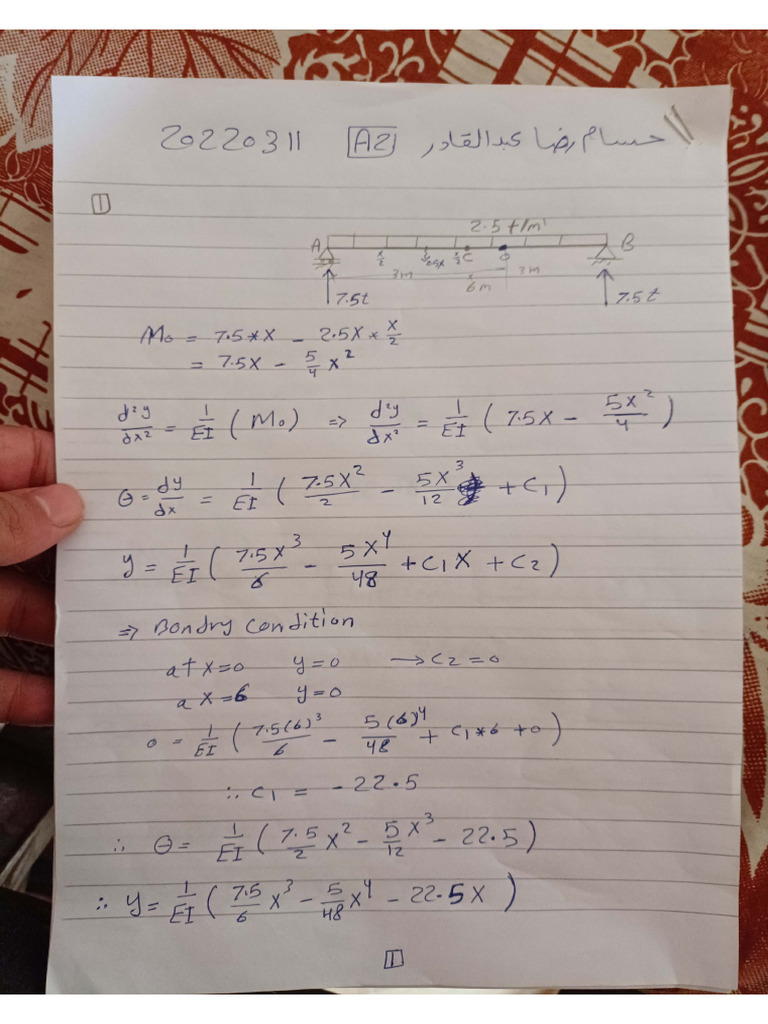 20220311 A2 حسام رضا عبدالقادر
1
2.5 t/m'
A B
x/2 x/2 C O
3m 3m
6m
7.5t 7.5t
M₀ = 7.5*x - 2.5x * x/2
= 7.5x - 5/4 x²
d²y/dx² = 1/EI (M₀) ⇒ d²y/dx² = 1/EI (7.5x - 5x²/4)
θ = dy/dx = 1/EI (7.5x²/2 - 5x³/12 + C₁)
y = 1/EI (7.5x³/6 - 5x⁴/48 + C₁x + C₂)
⇒ Bondry Condition
at x=0 y=0 → C₂=0
a x=6 y=0
0 = 1/EI (7.5(6)³/6 - 5(6)⁴/48 + C₁*6 + 0)
∴ C₁ = -22.5
∴ θ = 1/EI (7.5/2 x² - 5x³/12 - 22.5)
∴ y = 1/EI (7.5/6 x³ - 5/48 x⁴ - 22.5x)
1